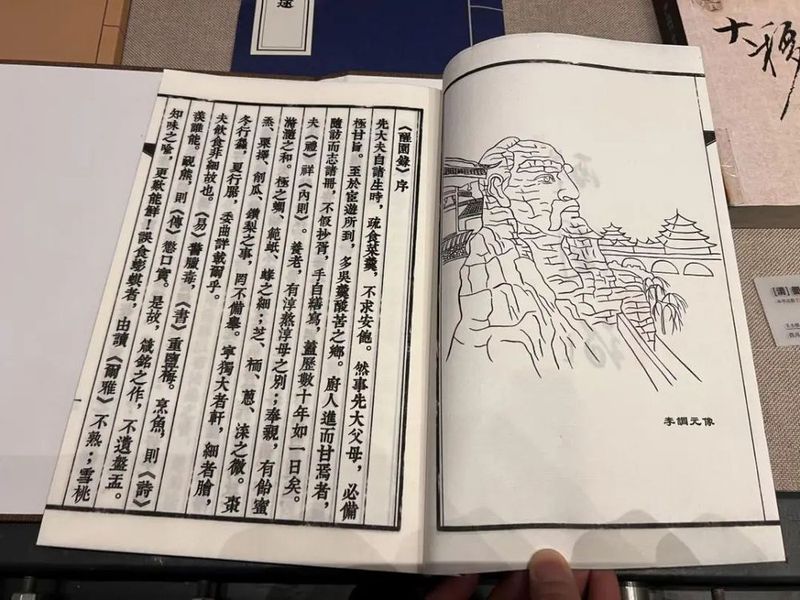 李調元像
《醒園錄》序
先大夫自諸生時，疏食菜羹，不求安飽。然事先大父母，必備
極甘旨。至於宦遊所到，多吳羹酸苦之鄉。廚人進而甘焉者，
隨訪而志諸冊，不假抄胥，手自繕寫，蓋歷數十年如一日矣。
夫《禮》祥《內則》。養老，有淳熬淳母之別；奉親，有飴蜜
滫瀡之和。極之蜩、範蚳、蜂之細；芝、栭、蔥、渿之微。棗
烝、栗擇、削瓜、鑽梨之事，罔不備舉。寧獨大者軒，細者膾，
冬行鱻，夏行腒，委曲詳載爾乎。
夫飲食非細故也。《易》警臘毒，《書》重鹽梅。烹魚，則《詩》
羨誰能。胹熊，則《傳》懲口實。是故，箴銘之作，不遺盤盂。
知味之喻，更歎能鮮！誤食蟛蜞者，由讀《爾雅》不熟；雪桃